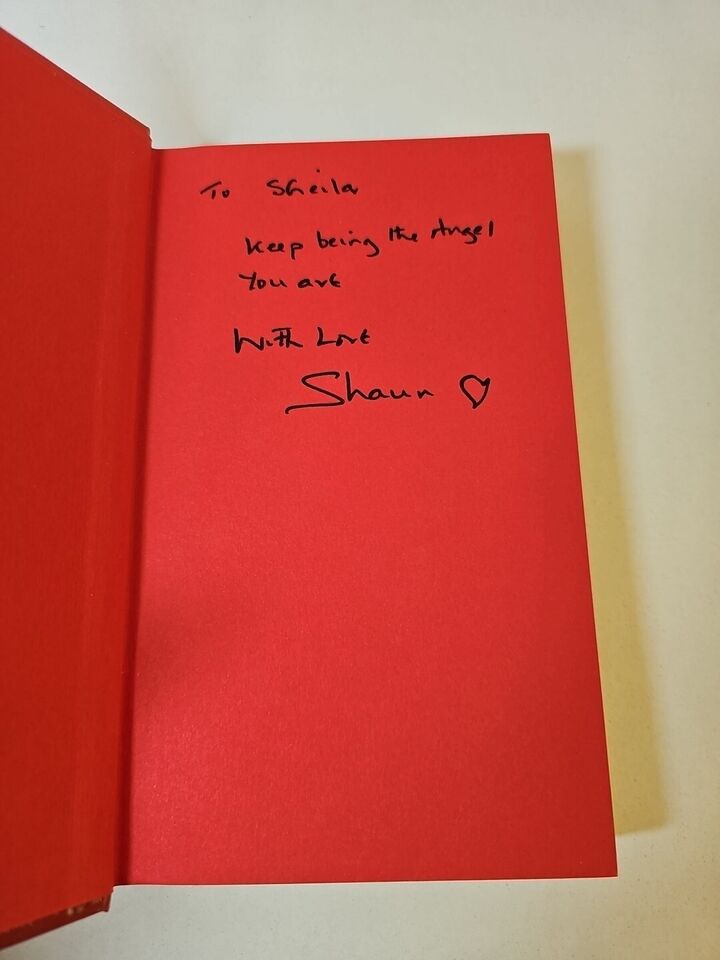 To Sheila
Keep being the Angel
You are
With Love
Shaun ♡